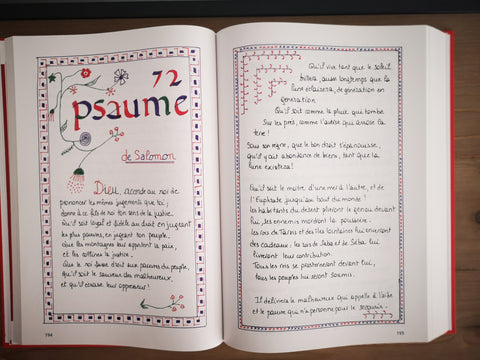 72
psaume
de Salomon
Dieu, accorde au roi de
prononcer les mêmes jugements que toi ;
donne à ce fils de roi ton sens de la justice.
Qu'il soit loyal et fidèle au droit en jugeant
les plus pauvres, en jugeant ton peuple.
Que les montagnes leur apportent la paix,
et les collines la justice.
Que le roi fasse droit aux pauvres du peuple,
qu'il soit le sauveur des malheureux,
et qu'il écrase leur oppresseur !
194
Qu'il vive tant que le soleil
brillera, aussi longtemps que la
lune éclairera, de génération en
génération.
Qu'il soit comme la pluie qui tombe
sur les prés, comme l'averse qui arrose la
terre !
Sous son règne, que le bon droit s'épanouisse,
qu'il y ait abondance de biens, tant que la
lune existera !
Qu'il soit le maître d'une mer à l'autre, et de
l'Euphrate jusqu'au bout du monde !
Les habitants du désert plieront le genou devant
lui, les ennemis mordront la poussière.
Les rois de Tarsis et des îles lointaines lui enverront
des cadeaux ; les rois de Saba et de Séba lui
livreront leur contribution.
Tous les rois se prosterneront devant lui,
tous les peuples lui seront soumis.
Il délivrera le malheureux qui appelle à l'aide
et le pauvre qui n'a personne pour le secourir.
195